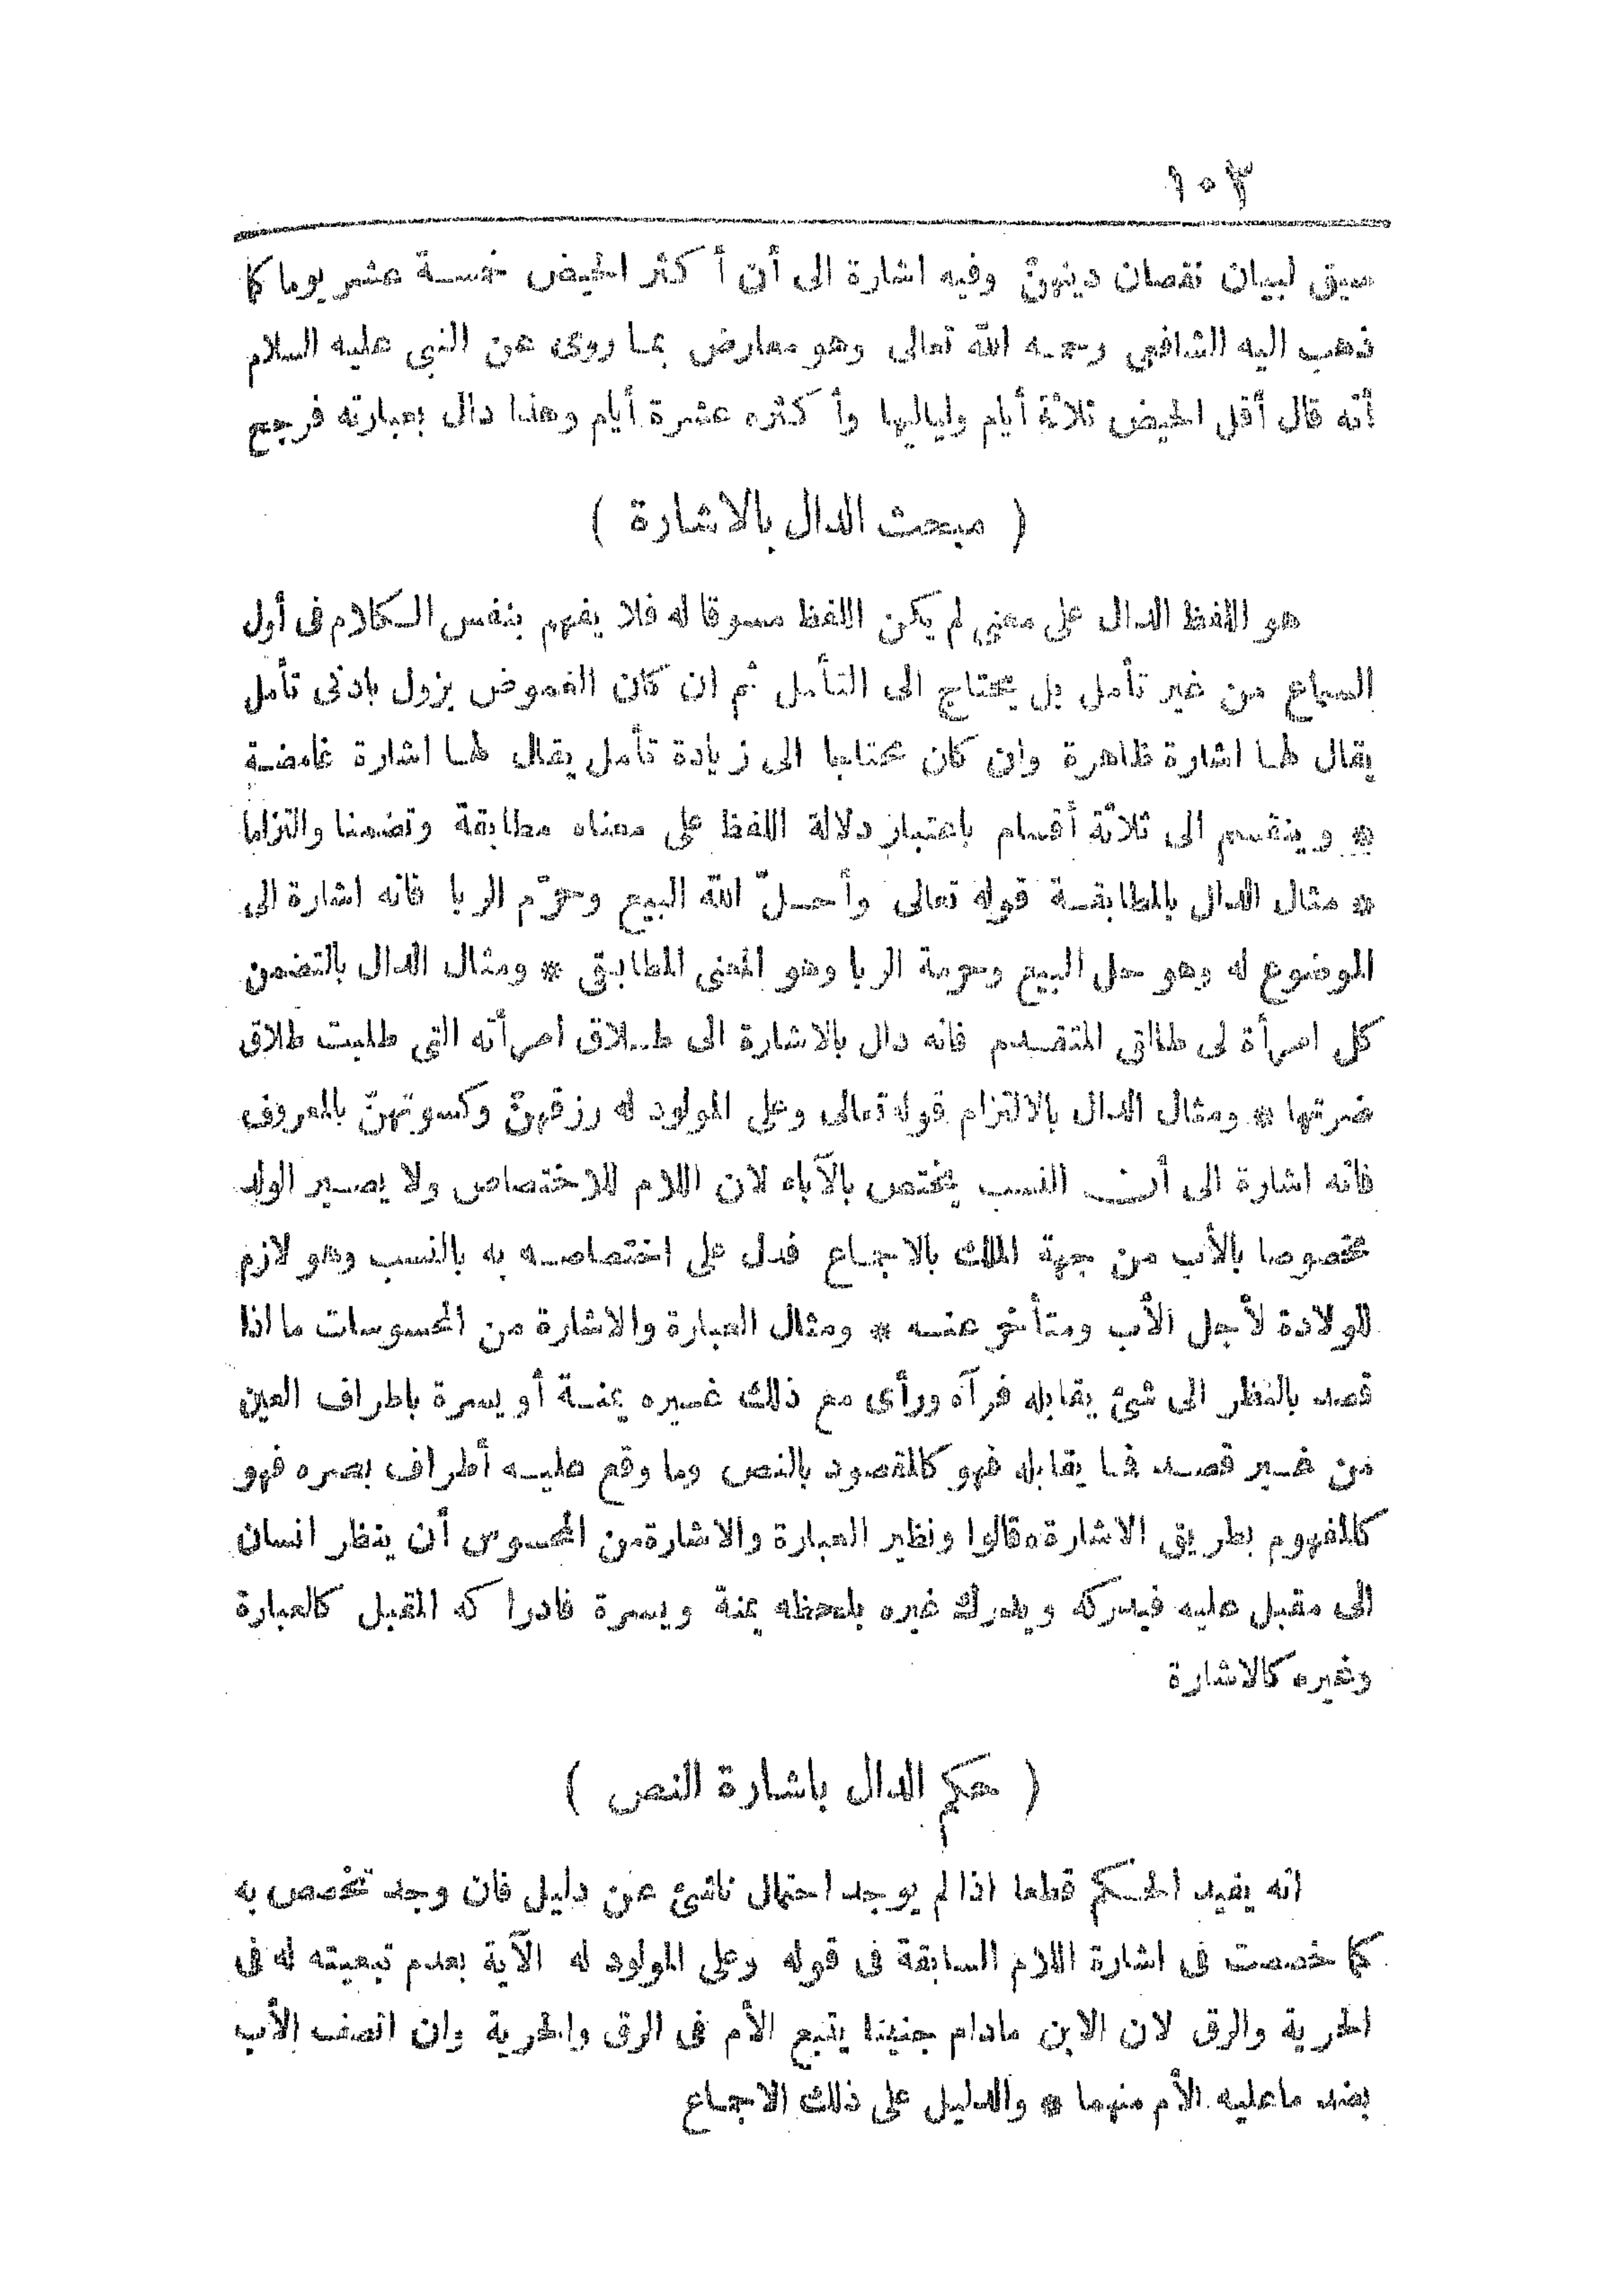 ١٠٣
سيق لبيان نقصان دينهنّ وفيه اشارة الى أن أكثر الحيض خمسة عشر يوما كما
ذهب اليه الشافعي رحمه الله تعالى وهو معارض بما روى عن النبي عليه السلام
أنه قال أقل الحيض ثلاثة أيام ولياليها وأكثره عشرة أيام وهذا دال بعبارته فرجح
( مبحث الدال بالاشارة )
هو اللفظ الدال على معنى لم يكن اللفظ مسوقا له فلا يفهم بنفس الكلام فى أول
السماع من غير تأمل بل يحتاج الى التأمل ثم ان كان الغموض يزول بادنى تأمل
يقال لها اشارة ظاهرة وان كان محتاجا الى زيادة تأمل يقال لها اشارة غامضة
* وينقسم الى ثلاثة أقسام باعتبار دلالة اللفظ على معناه مطابقة وتضمنا والتزاما
* مثال الدال بالمطابقة قوله تعالى وأحلّ الله البيع وحرّم الربا فانه اشارة الى
الموضوع له وهو حل البيع وحرمة الربا وهو المعنى المطابقى * ومثال الدال بالتضمن
كل امرأة لى طالق المتقدم فانه دال بالاشارة الى طلاق امرأته التى طلبت طلاق
ضرتها * ومثال الدال بالالتزام قوله تعالى وعلى المولود له رزقهنّ وكسوتهنّ بالمعروف
فانه اشارة الى أن النسب يختص بالآباء لان اللام للاختصاص ولا يصير الولد
مخصوصا بالأب من جهة الملك بالاجماع فدل على اختصاصه به بالنسب وهو لازم
للولادة لأجل الأب ومتأخر عنه * ومثال العبارة والاشارة من المحسوسات ما اذا
قصد بالنظر الى شئ يقابله فرآه ورأى مع ذلك غيره يمنة أو يسرة باطراف العين
من غير قصد فما يقابله فهو كالمقصود بالنص وما وقع عليه أطراف بصره فهو
كالمفهوم بطريق الاشارة وقالوا ونظير العبارة والاشارة من المحسوس أن ينظر انسان
الى مقبل عليه فيدركه ويدرك غيره بلحظه يمنة ويسرة فادراكه المقبل كالعبارة
وغيره كالاشارة
( حكم الدال باشارة النص )
انه يفيد الحكم قطعا اذا لم يوجد احتمال ناشئ عن دليل فان وجد تخصص به
كما خصصت فى اشارة اللام السابقة فى قوله وعلى المولود له الآية بعدم تبعيته له فى
الحرية والرق لان الابن مادام جنينا يتبع الأم فى الرق والحرية وان اتصف الأب
بضد ما عليه الأم منهما * والدليل على ذلك الاجماع